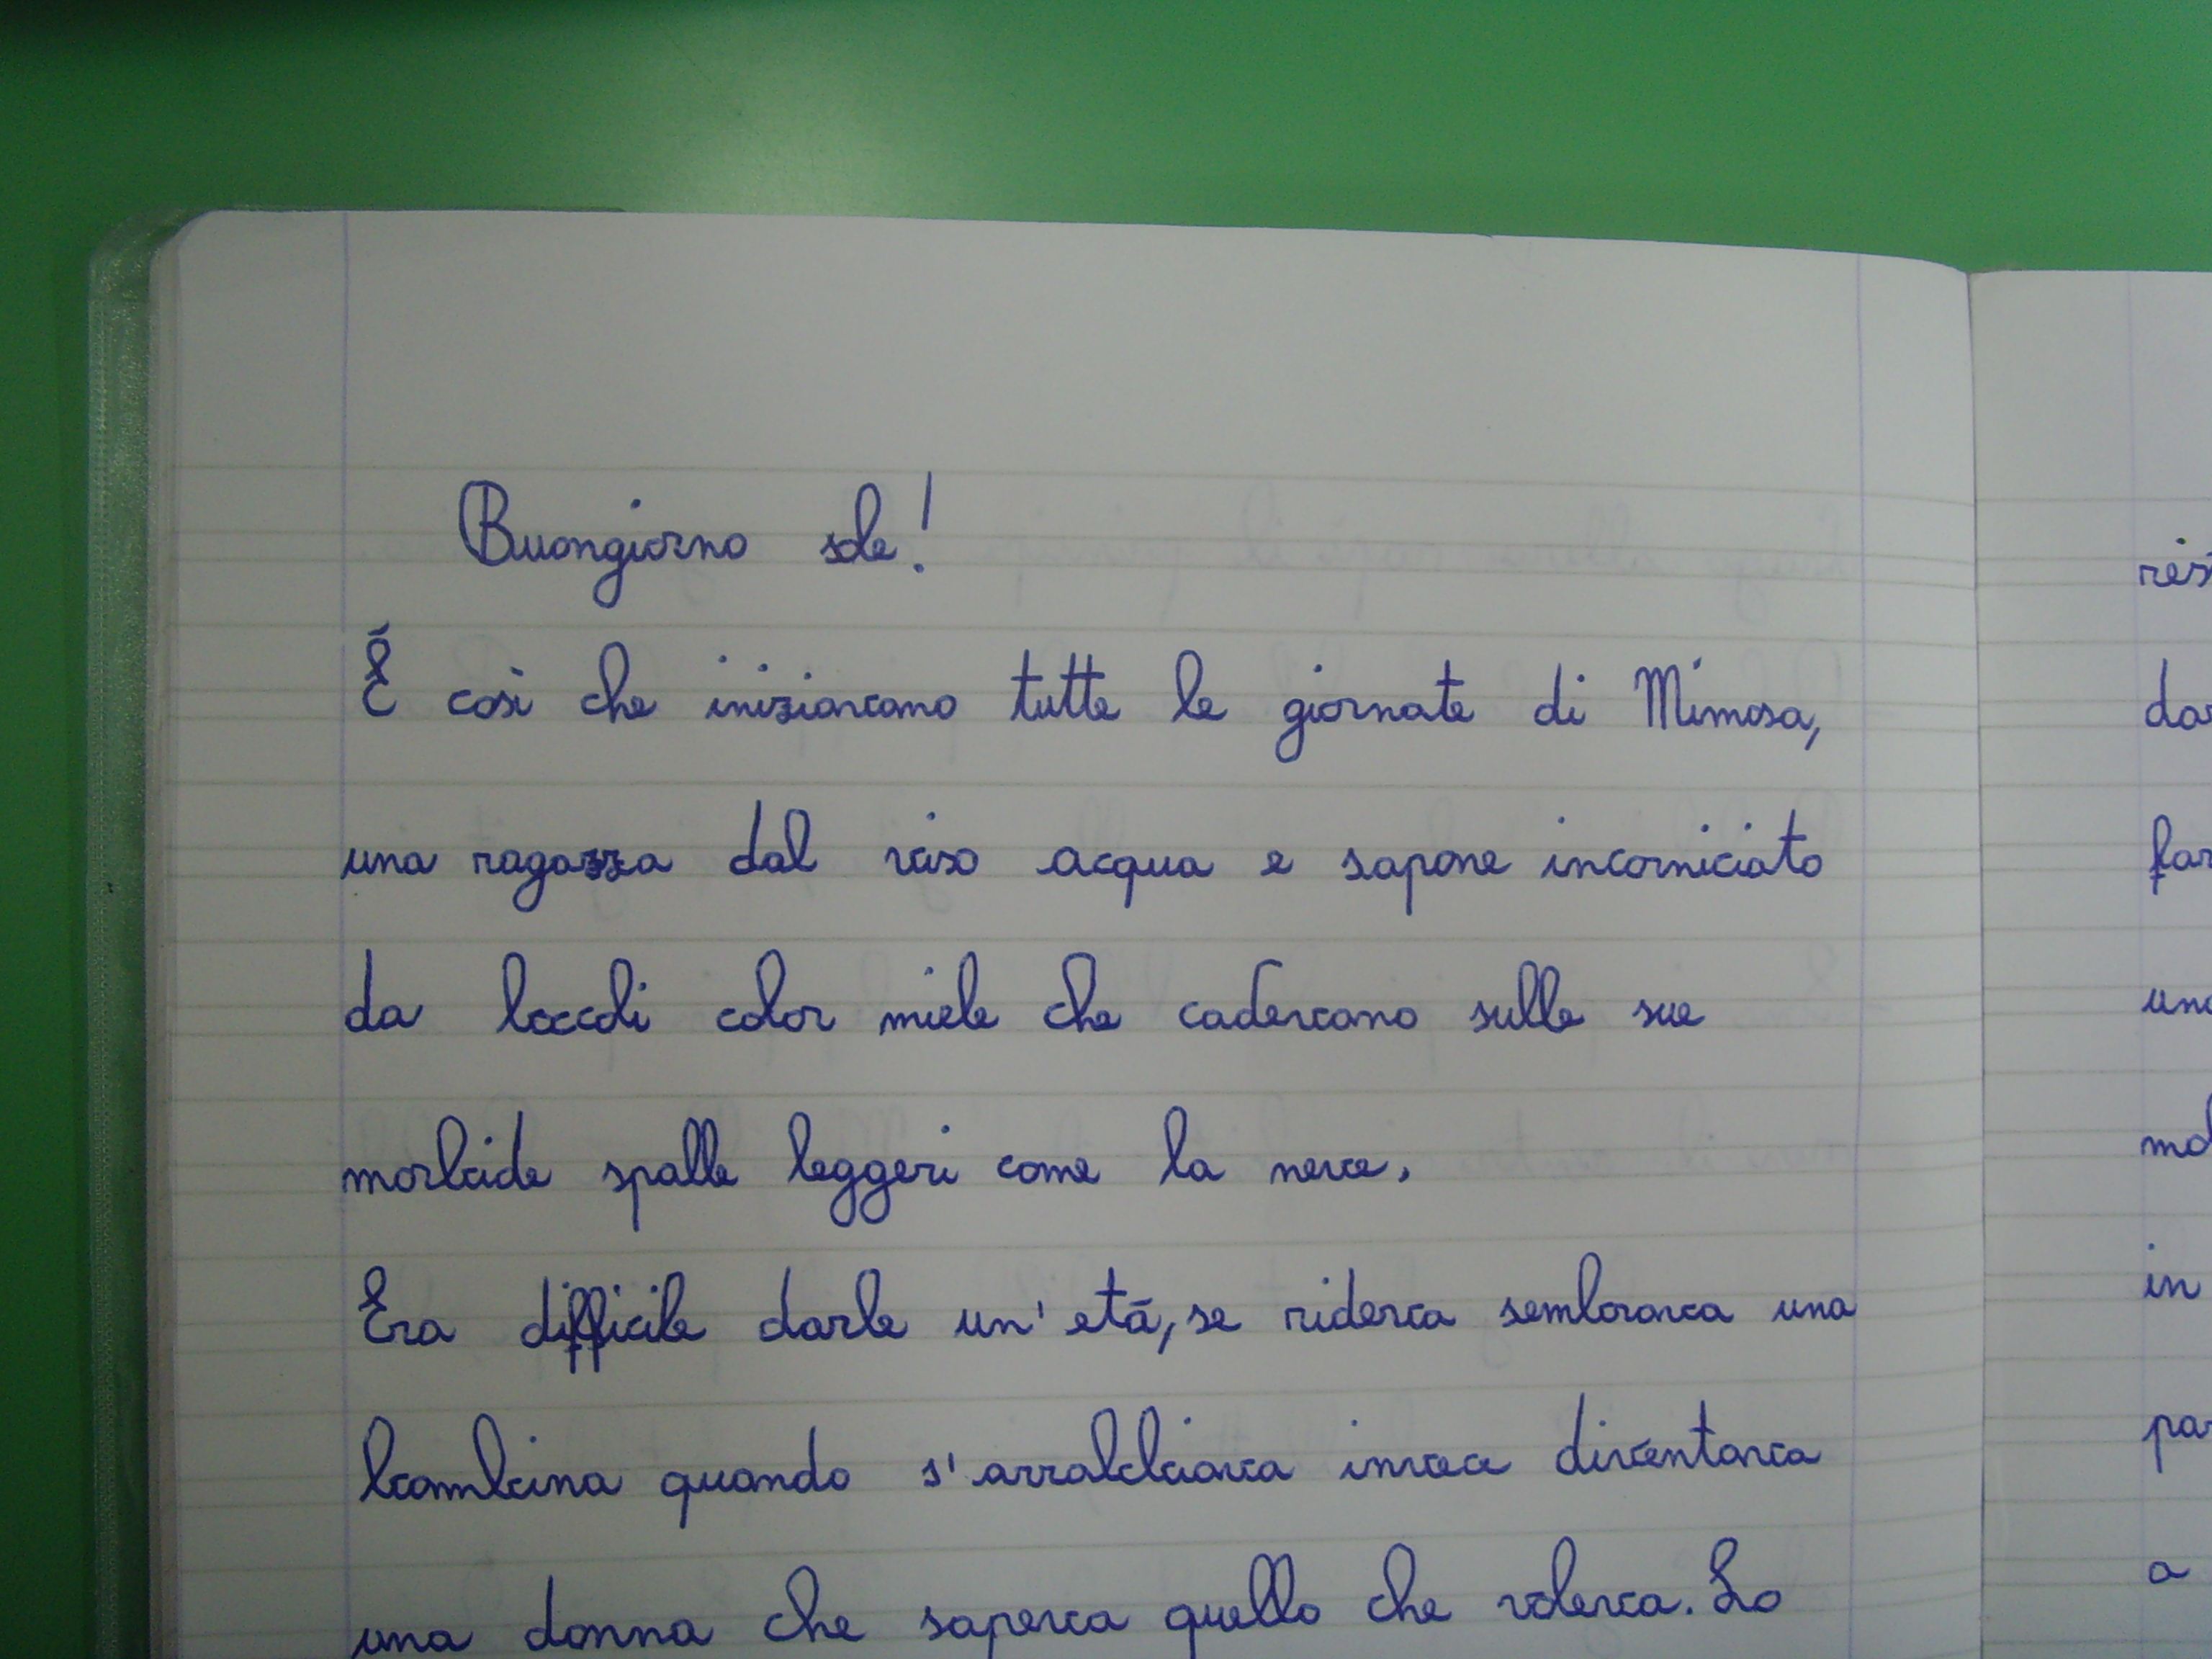 Buongiorno sole!
É così che iniziavano tutte le giornate di Mimosa,
una ragazza dal viso acqua e sapone incorniciato
da boccoli color miele che cadevano sulle sue
morbide spalle leggeri come la neve.
Era difficile darle un'età, se rideva sembrava una
bambina quando s'arrabbiava invece diventava
una donna che sapeva quello che voleva. Lo
da
fa
un
in
pa
a